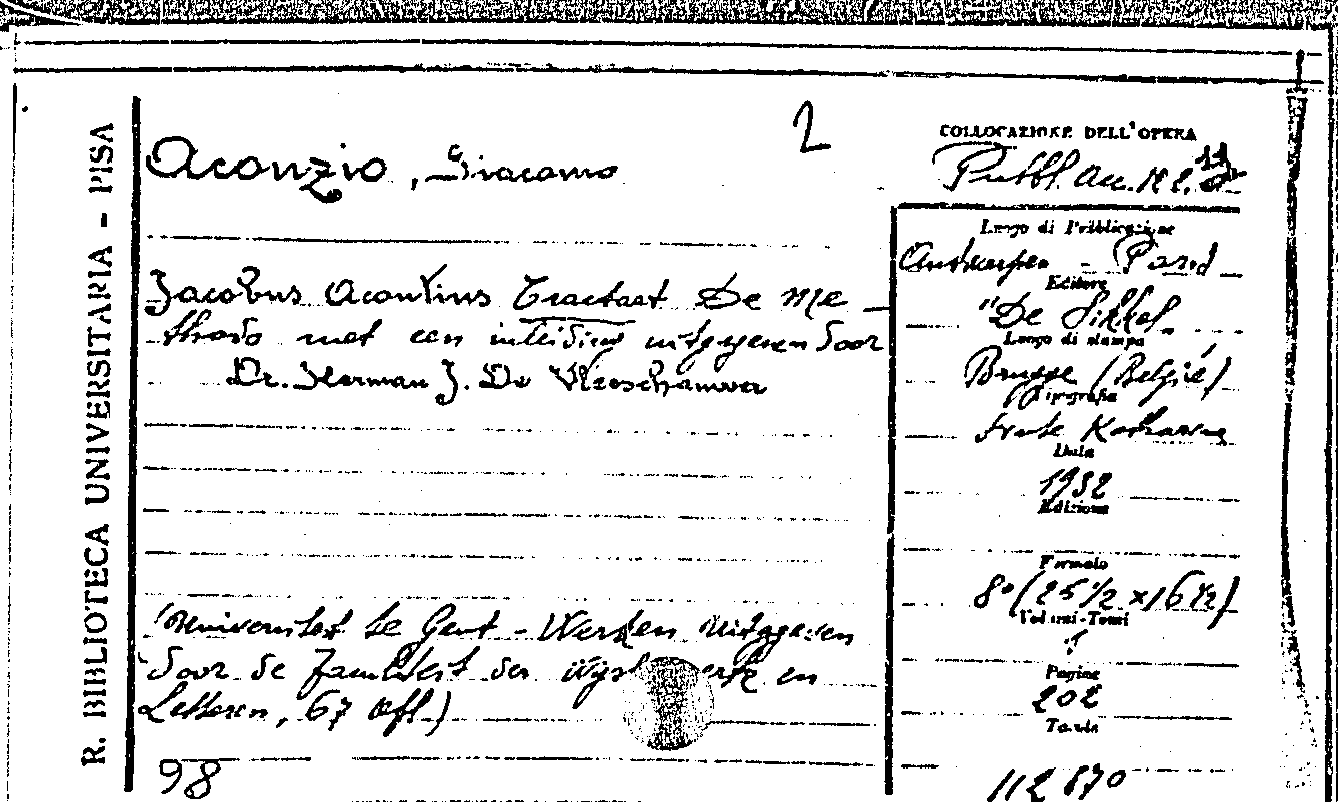 R. BIBLIOTECA UNIVERSITARIA - PISA
2
Aconzio, Giacomo
Jacobus Acontius Tractaat De Me-
thodo met een inleiding uitgegeven door
Dr. Herman J. De Vleeschauwer
(Universiteit te Gent - Werken uitgegeven
door de Faculteit der en
Letteren, 67 Afl.)
98
COLLOCAZIONE DELL'OPERA
Pubbl. Acc.
Luogo di Pubblicazione
Antwerpen - Parijs
Editore
"De Sikkel"
Luogo di stampa
Brugge (België)
Tipografia
Katharina
Data
1932
Edizione
Formato
8° (25 1/2 x 16 1/2)
Volumi-Tomi
1
Pagine
202
Tavole
112870